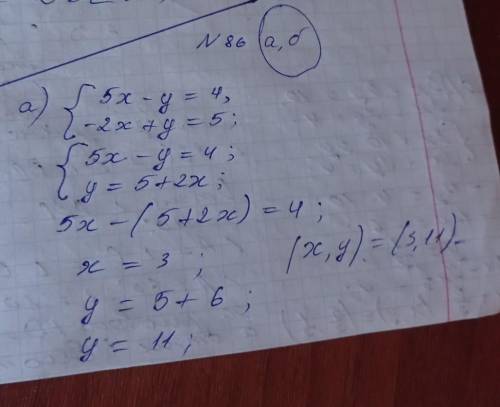 N 86 а,б
а) { 5x - y = 4,
-2x + y = 5;
{ 5x - y = 4;
y = 5+2x;
5x - (5+2x) = 4;
x = 3; (x,y) = (3,11).
y = 5+6;
y = 11;